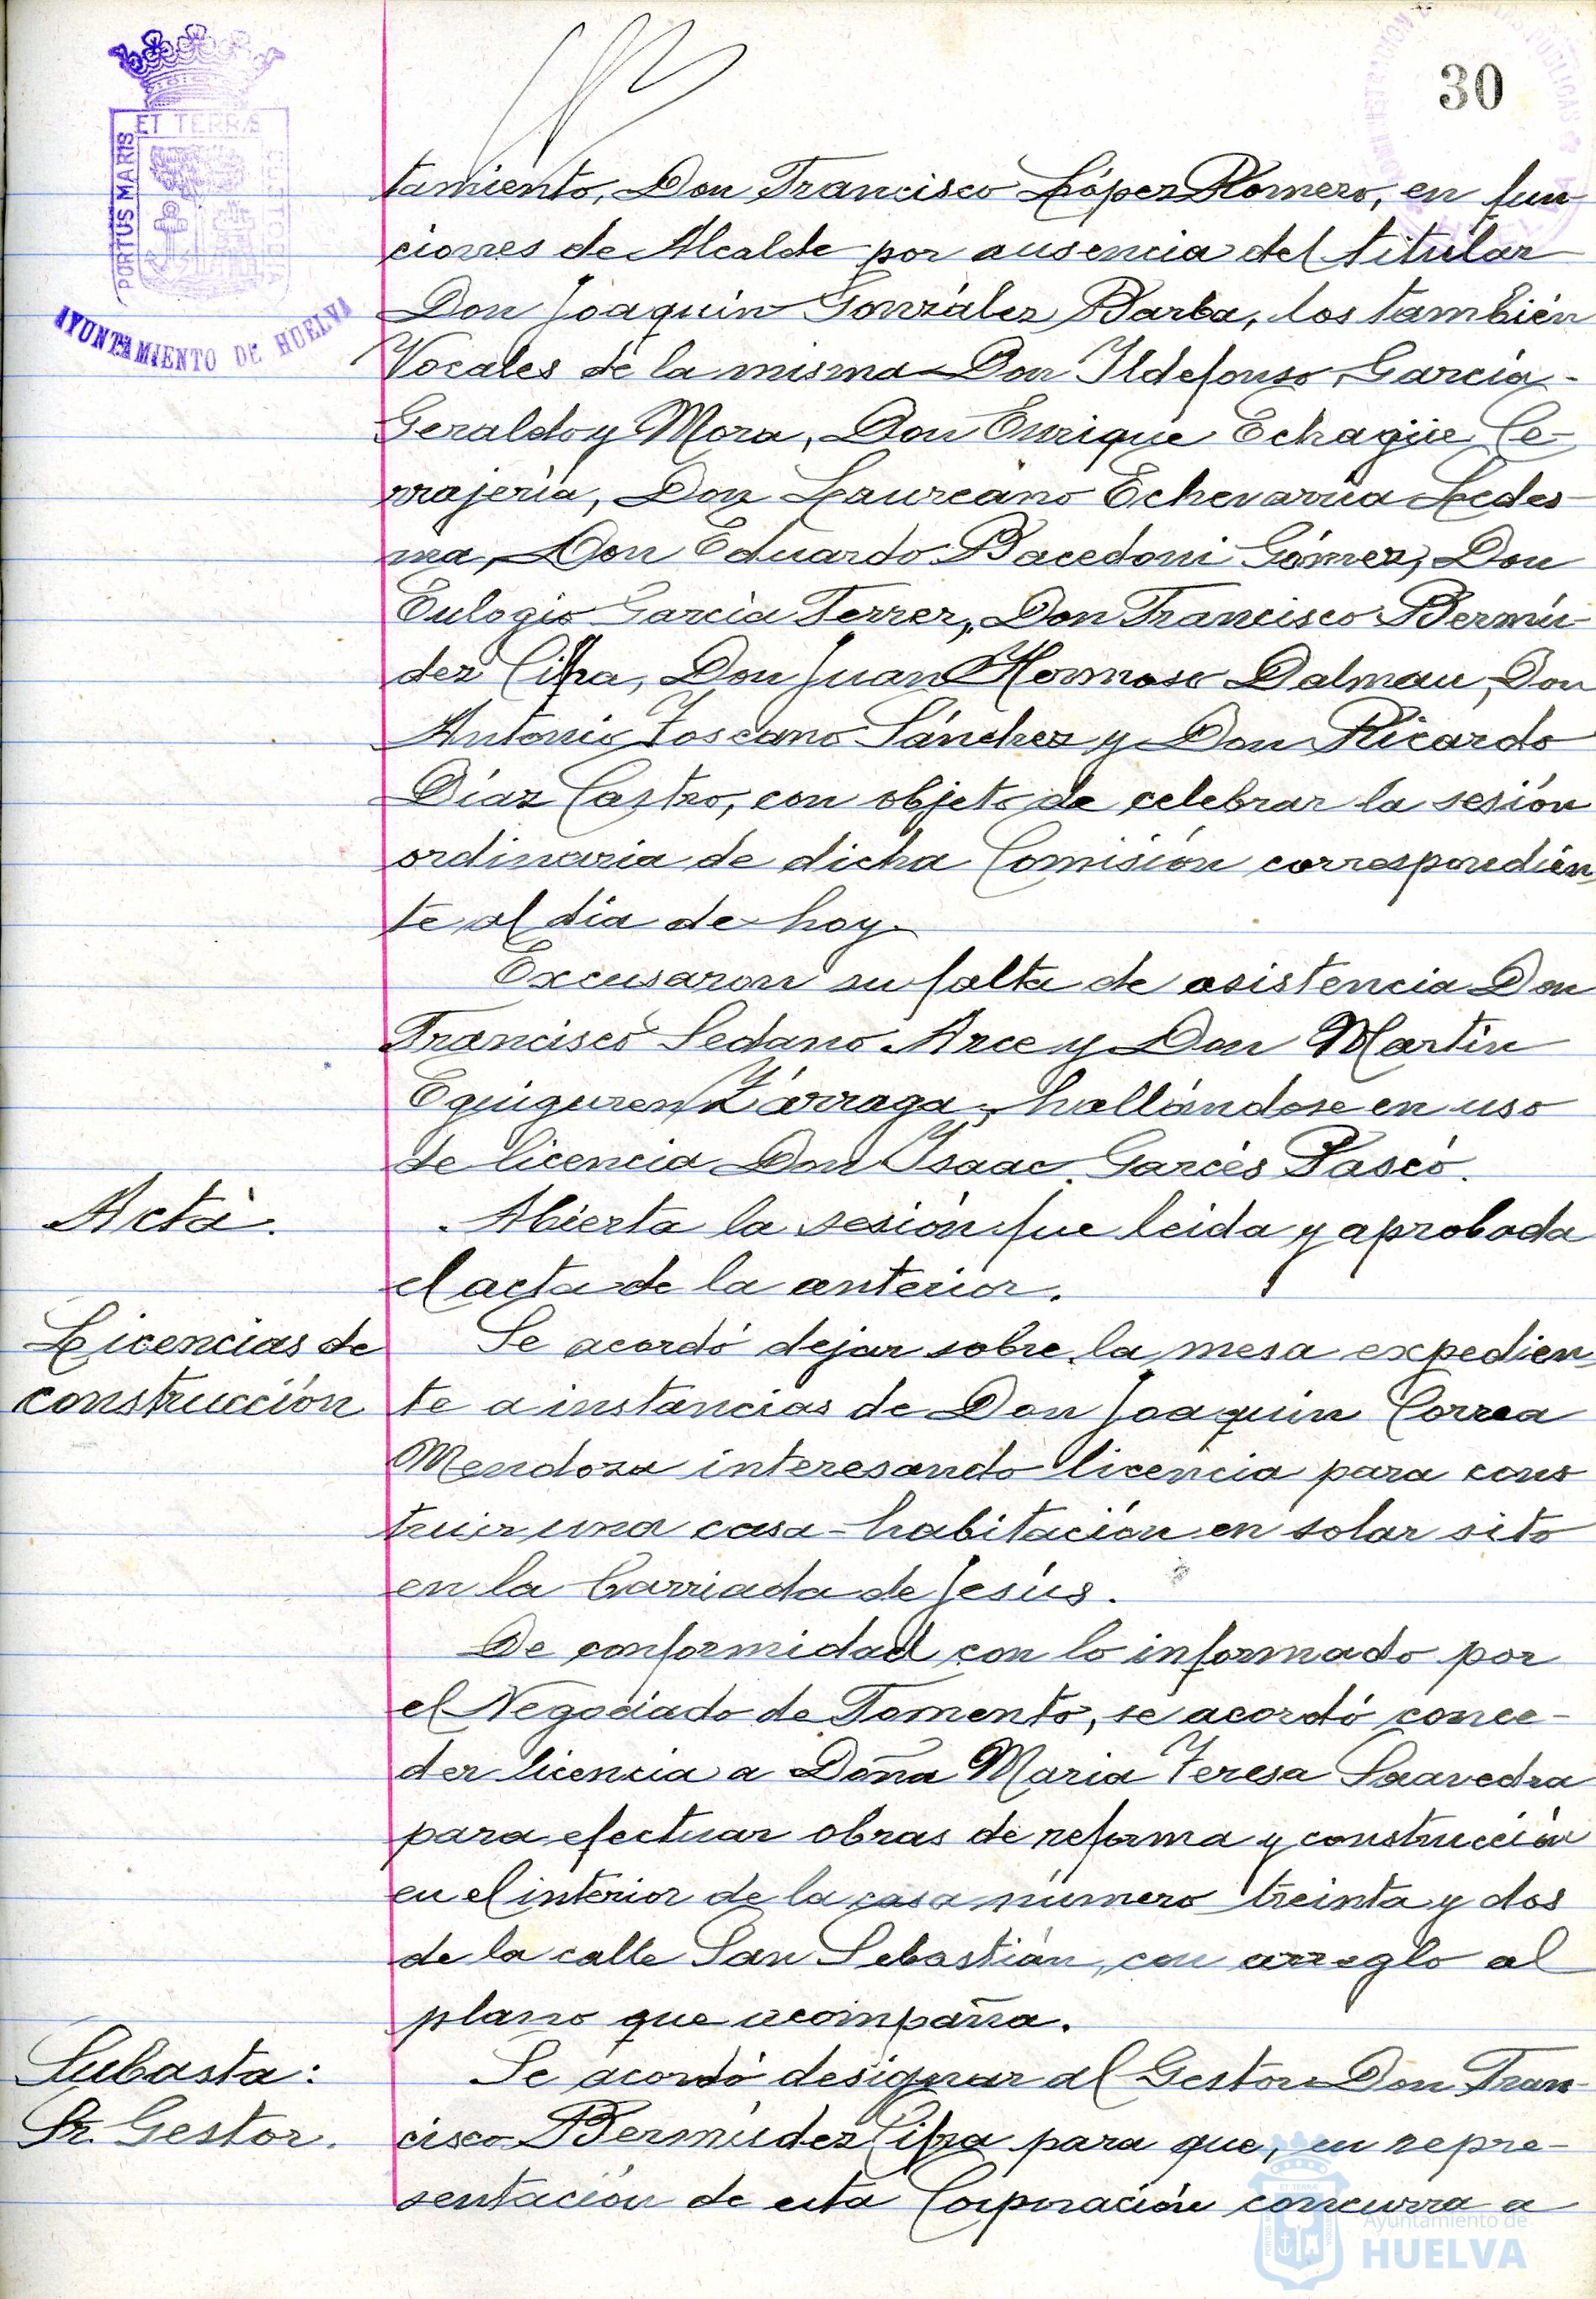 30
ET TERRÆ
PORTUS MARIS
CUSTODIA
AYUNTAMIENTO DE HUELVA
tamiento, Don Francisco López Romero, en fun-
ciones de Alcalde por ausencia del titular
Don Joaquín González Barba, los también
Vocales de la misma Don Ildefonso García-
Geraldo y Mora, Don Enrique Echagüe Ce-
rrajería, Don Laureano Echevarría Ledes-
ma, Don Eduardo Bacedoni Gómez, Don
Eulogio García Ferrer, Don Francisco Bermú-
dez Cifra, Don Juan Hermoso Dalmau, Don
Antonio Toscano Sánchez y Don Ricardo
Díaz Castro, con objeto de celebrar la sesión
ordinaria de dicha Comisión correspondien-
te al día de hoy.
Excusaron su falta de asistencia Don
Francisco Sedano Arce y Don Martín
Eguiguren Zárraga, hallándose en uso
de licencia Don Isaac Garcés Pascó.
Acta.
Abierta la sesión fue leida y aprobada
el acta de la anterior.
Licencias de
construcción
Se acordó dejar sobre la mesa expedien-
te a instancias de Don Joaquín Correa
Mendoza interesando licencia para cons
truir una casa-habitación en solar sito
en la barriada de Jesús.
De conformidad con lo informado por
el Negociado de Fomento, se acordó conce-
der licencia a Doña Maria Teresa Saavedra
para efectuar obras de reforma y construcción
en el interior de la casa número treinta y dos
de la calle San Sebastián, con arreglo al
plano que acompaña.
Subasta:
Sr. Gestor.
Se acordó designar al Gestor Don Fran-
cisco Bermúdez Cifra para que, en repre-
sentación de esta Corporación concurra a
Ayuntamiento de
HUELVA